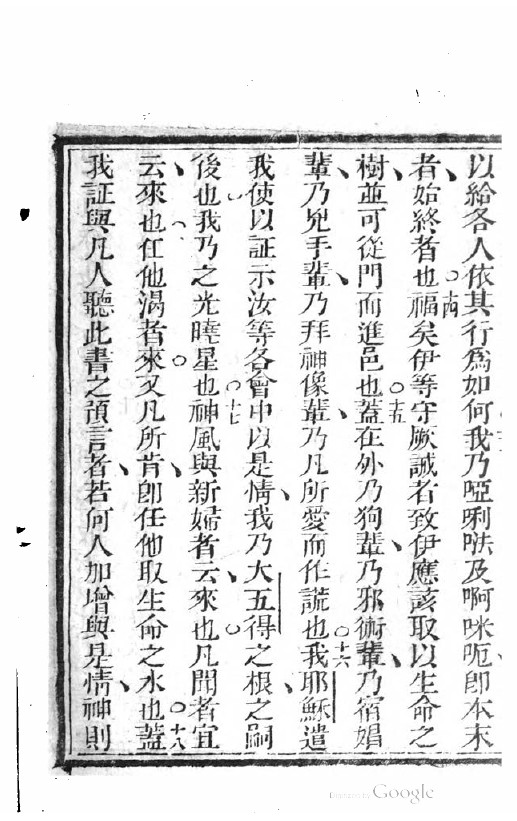 以給各人依其行為如何我乃啞唎㕹及啊咪呃即本末
者始終者也十四福矣伊等守厥誡者致伊應該取以生命之
樹並可從門而進邑也十五蓋在外乃狗輩乃邪術輩乃宿娼
輩乃兇手輩乃拜神像輩乃凡所愛而作謊也十六我耶穌遣
我使以証示汝等各會中以是情我乃大五得之根之嗣
後也我乃之光曉星也十七神風與新婦者云來也凡聞者宜
云來也任他渴者來又凡所肯即任他取生命之水也十八蓋
我証與凡人聽此書之預言者若何人加增與是情神則
Digitized by Google